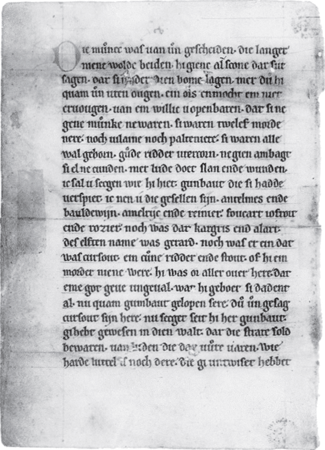 ie munec was van un gescheiden. die langer
niene wolde beiden. hi giene al scone dar sur
sagen. dar si under den bome lagen. mer du hi
quam un uten ougen. em ois enmochte em nier
ervougen. van em willic u openbaren. dat si ne
gene munke ne waren. si waren twelef morde
nere. noch inlame noch palteniere. si waren alle
wal geborn. gude ridder utercorn. negien ambagt
si el ne cunden. mer lude doet slan ende wunden.
ic sal u seegen wie hi hiet. gunbaut die si hadde
verspiet. ic nen u die gesellen sijn. antelmes ende
bauldewijn. amelrijc ende reinier. foucart iofroit
ende rozier. noch was dar kargris end alart.
des elften name was gerard. noch was er en dat
was cursout. em cune ridder ende stout. of hi em
morder niene were. hi was oi aller over here. dar
eme gor geve ungeval. war hi geboet si dadent
al. nu quam gunbaut gelopen sere. du un gesag
cursout sijn here. nu seeget seit hi her gunbaut.
gi hebt gewesen in dien walt. dar die strate sold
bewaren. van luden die dar uure varen. wie
harde luttel is noch dere. die gi untwiser hebbet